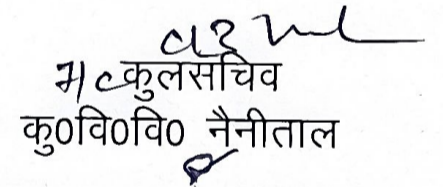 कुलसचिव
कु0वि0वि0 नैनीताल